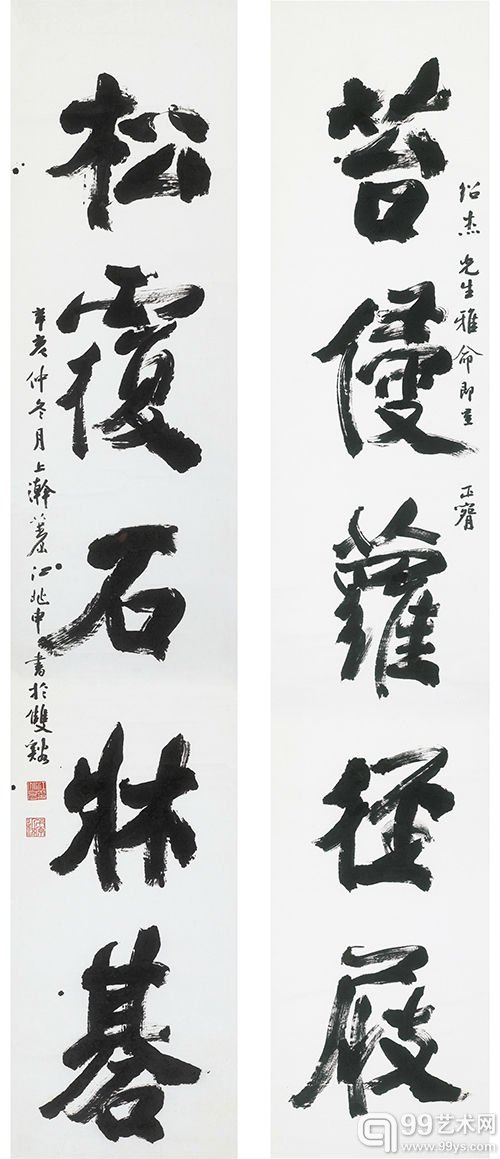 苔侵蘿徑屐
紹杰先生雅命即 正
松覆石牀碁
辛亥仲冬月上澣 江兆申書於雙谿
99艺术网
99ys.com